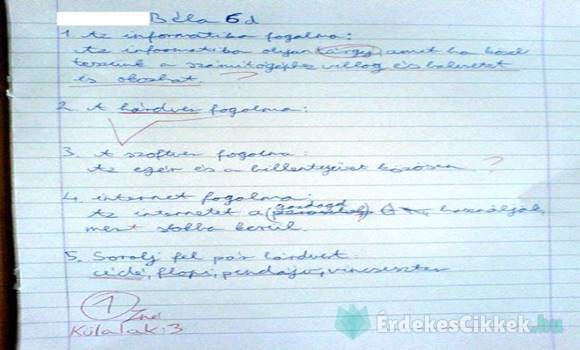 Béla 6d
1. Az informatika fogalma:
Az informatika olyan tárgy, amit ha közel
teszünk a számítógéphez villog és balesetet
is okozhat. ?
2. A hárdver fogalma:
3. A szoftver fogalma:
Az egér és a billentyűzet közösen ?
4. internet fogalma:
Az internetet a gazdagok használják,
mert sokba kerül.
5. Sorolj fel pár hárdvert:
cédé, flopi, pendájv, vincseszter
1
Külalak: 3
ÉrdekesCikkek.hu